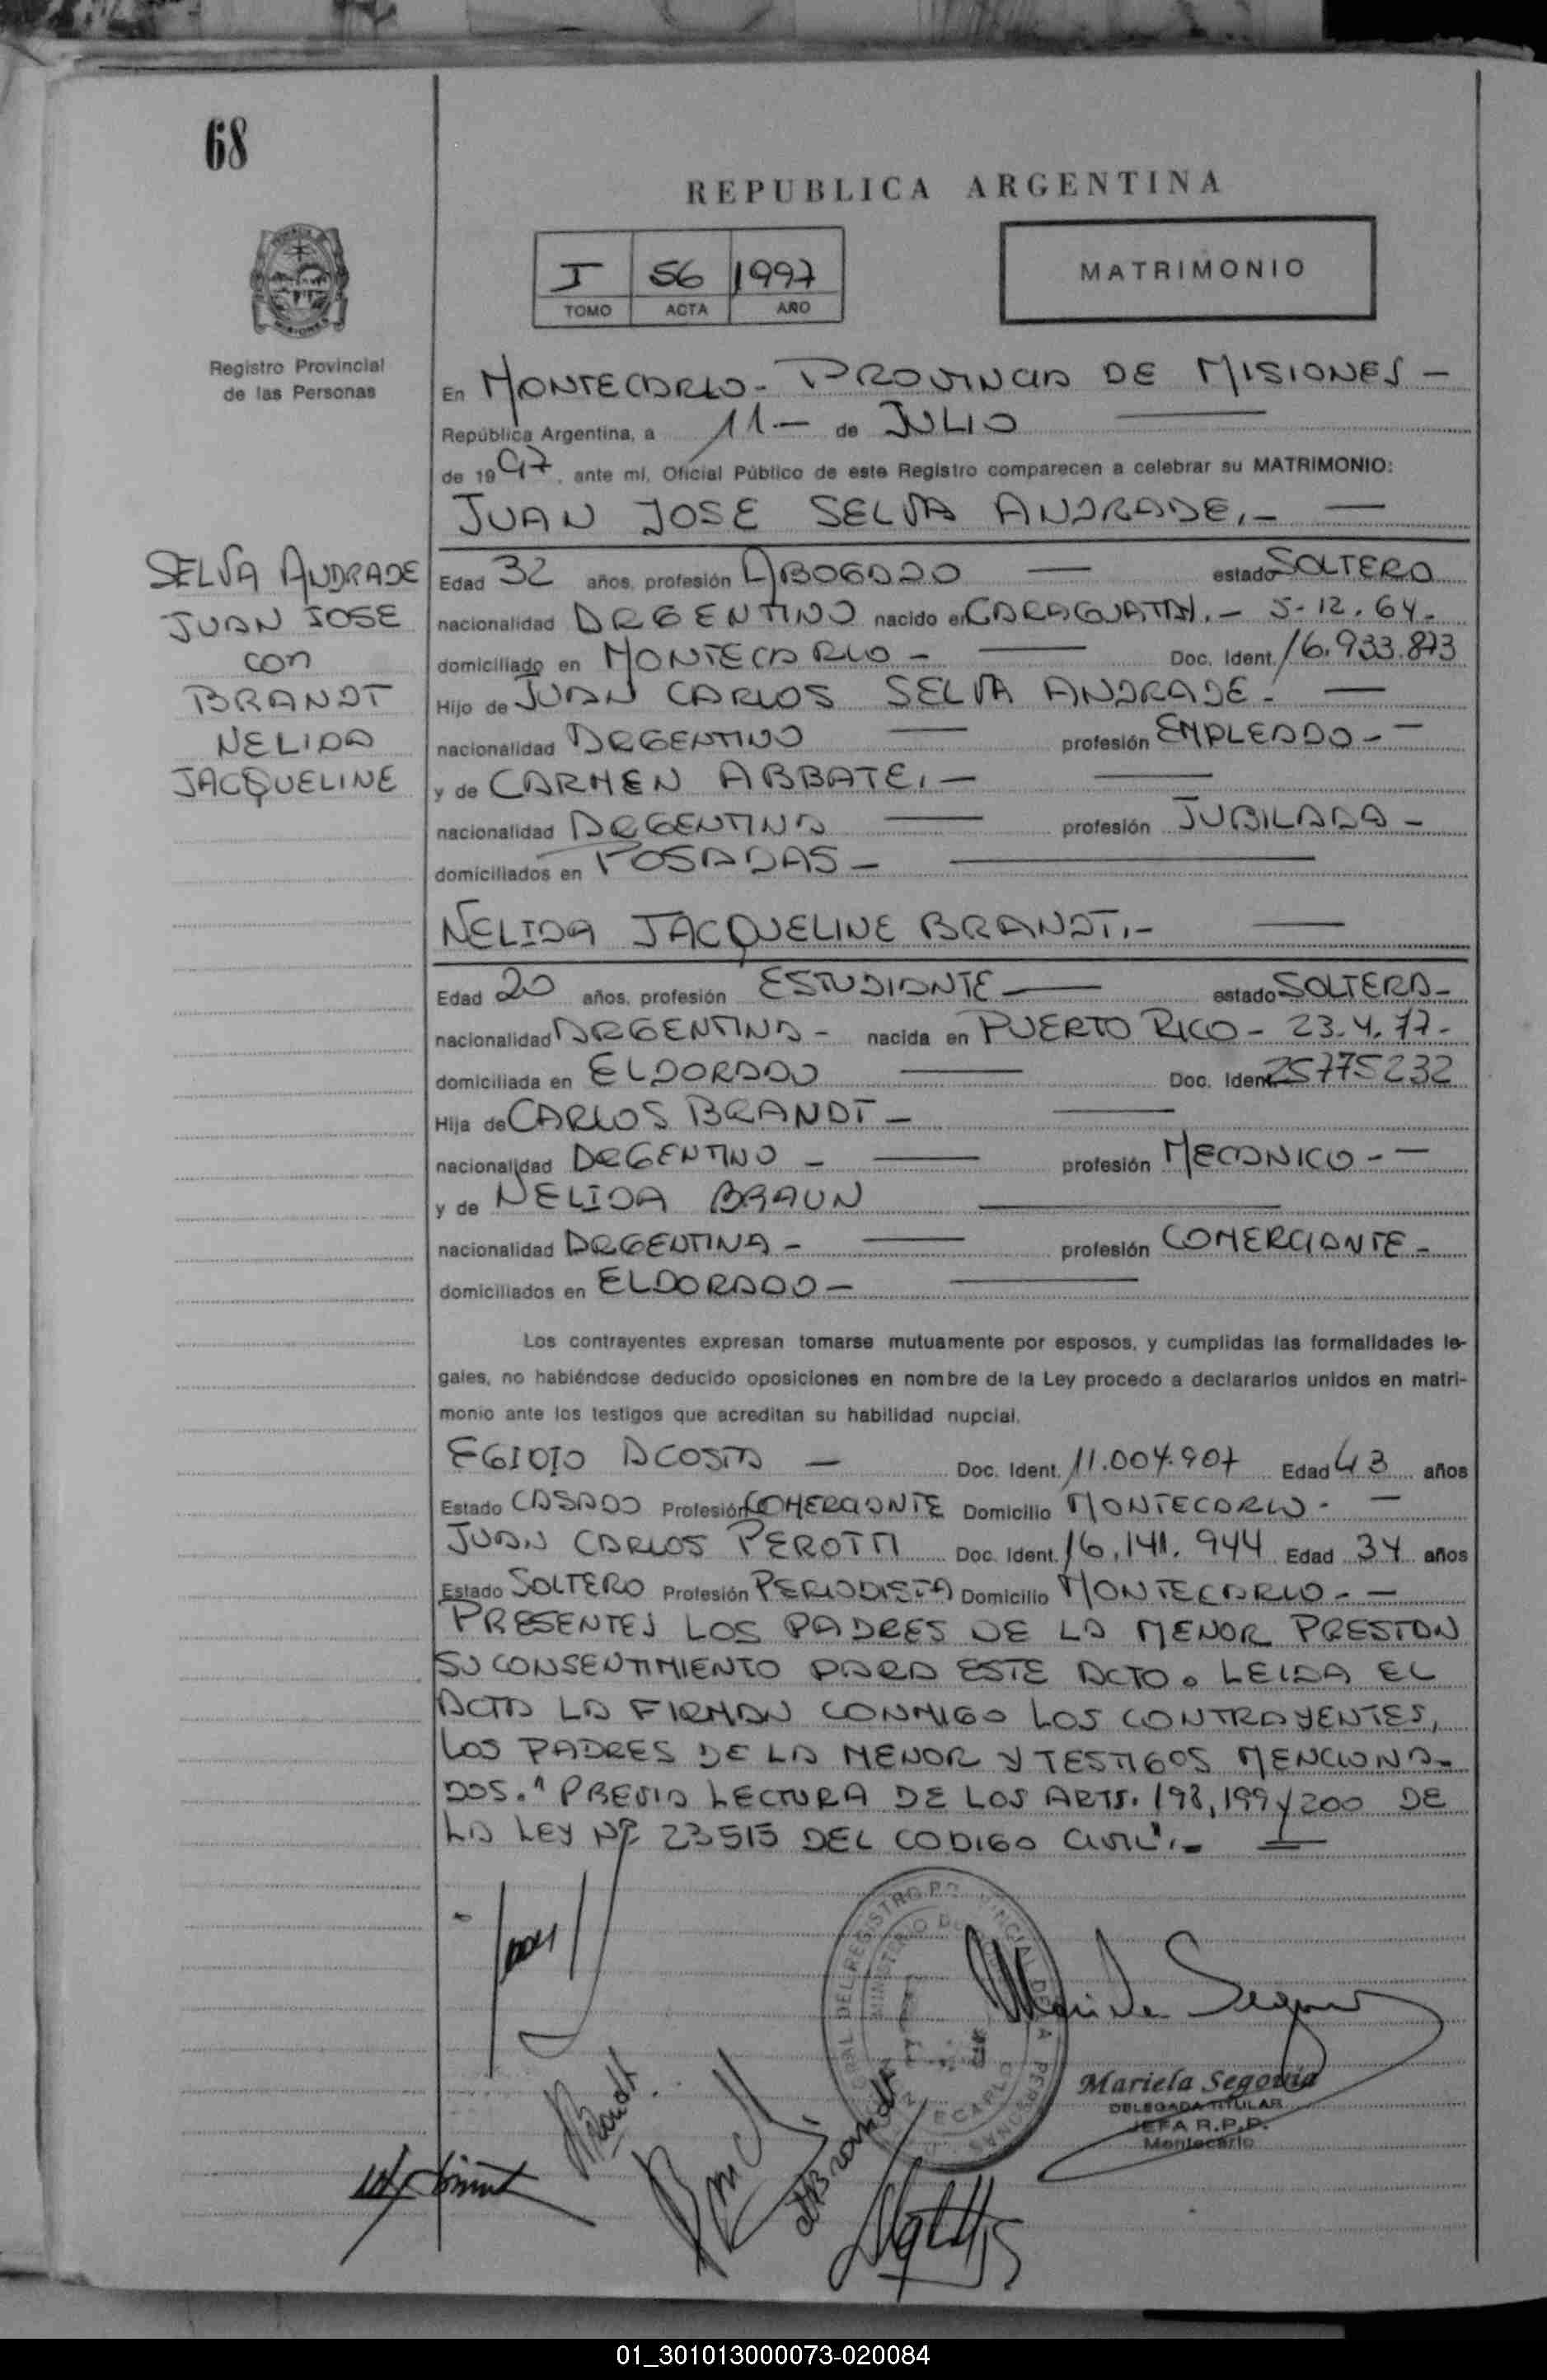 68
REPUBLICA ARGENTINA
I 56 1997
TOMO ACTA AÑO
MATRIMONIO
Registro Provincial
de las Personas
En MONTECARLO - PROVINCIA DE MISIONES -
República Argentina, a 11 - de JULIO
de 1997, ante mí, Oficial Público de este Registro comparecen a celebrar su MATRIMONIO:
JUAN JOSE SELVA ANDRADE.-
SELVA ANDRADE
JUAN JOSE
con
BRANDT
NELIDA
JACQUELINE
Edad 32 años, profesión ABOGADO estado SOLTERO
nacionalidad ARGENTINO nacido en CARAGUATAY.- 5-12.64.
domiciliado en MONTECARLO - Doc. Ident. 16.933.873
Hijo de JUAN CARLOS SELVA ANDRADE.
nacionalidad ARGENTINO profesión EMPLEADO -
y de CARMEN ABBATE.-
nacionalidad ARGENTINA profesión JUBILADA -
domiciliados en POSADAS -
NELIDA JACQUELINE BRANDT.-
Edad 20 años, profesión ESTUDIANTE estado SOLTERA -
nacionalidad ARGENTINA - nacida en PUERTO RICO - 23.4.77-
domiciliada en ELDORADO Doc. Ident. 25775232
Hija de CARLOS BRANDT -
nacionalidad ARGENTINO - profesión MECANICO -
y de NELIDA BRAUN
nacionalidad ARGENTINA - profesión COMERCIANTE -
domiciliados en ELDORADO -
Los contrayentes expresan tomarse mutuamente por esposos, y cumplidas las formalidades le-
gales, no habiéndose deducido oposiciones en nombre de la Ley procedo a declararlos unidos en matri-
monio ante los testigos que acreditan su habilidad nupcial.
EGIDIO ACOSTA - Doc. Ident. 11.004.907 Edad 43 años
Estado CASADO Profesión COMERCIANTE Domicilio MONTECARLO -
JUAN CARLOS PEROTTI Doc. Ident. 16.141.944 Edad 34 años
Estado SOLTERO Profesión PERIODISTA Domicilio MONTECARLO -
PRESENTES LOS PADRES DE LA MENOR PRESTAN
SU CONSENTIMIENTO PARA ESTE ACTO. LEIDA EL
ACTA LA FIRMAN CONMIGO LOS CONTRAYENTES,
LOS PADRES DE LA MENOR Y TESTIGOS MENCIONA-
DOS. "PREVIA LECTURA DE LOS ARTS. 198, 199 y 200 DE
LA LEY Nº 23515 DEL CODIGO CIVIL".-
Mariela Segovia
DELEGADA TITULAR
JEFA R.P.P.
Montecarlo
01_301013000073-020084